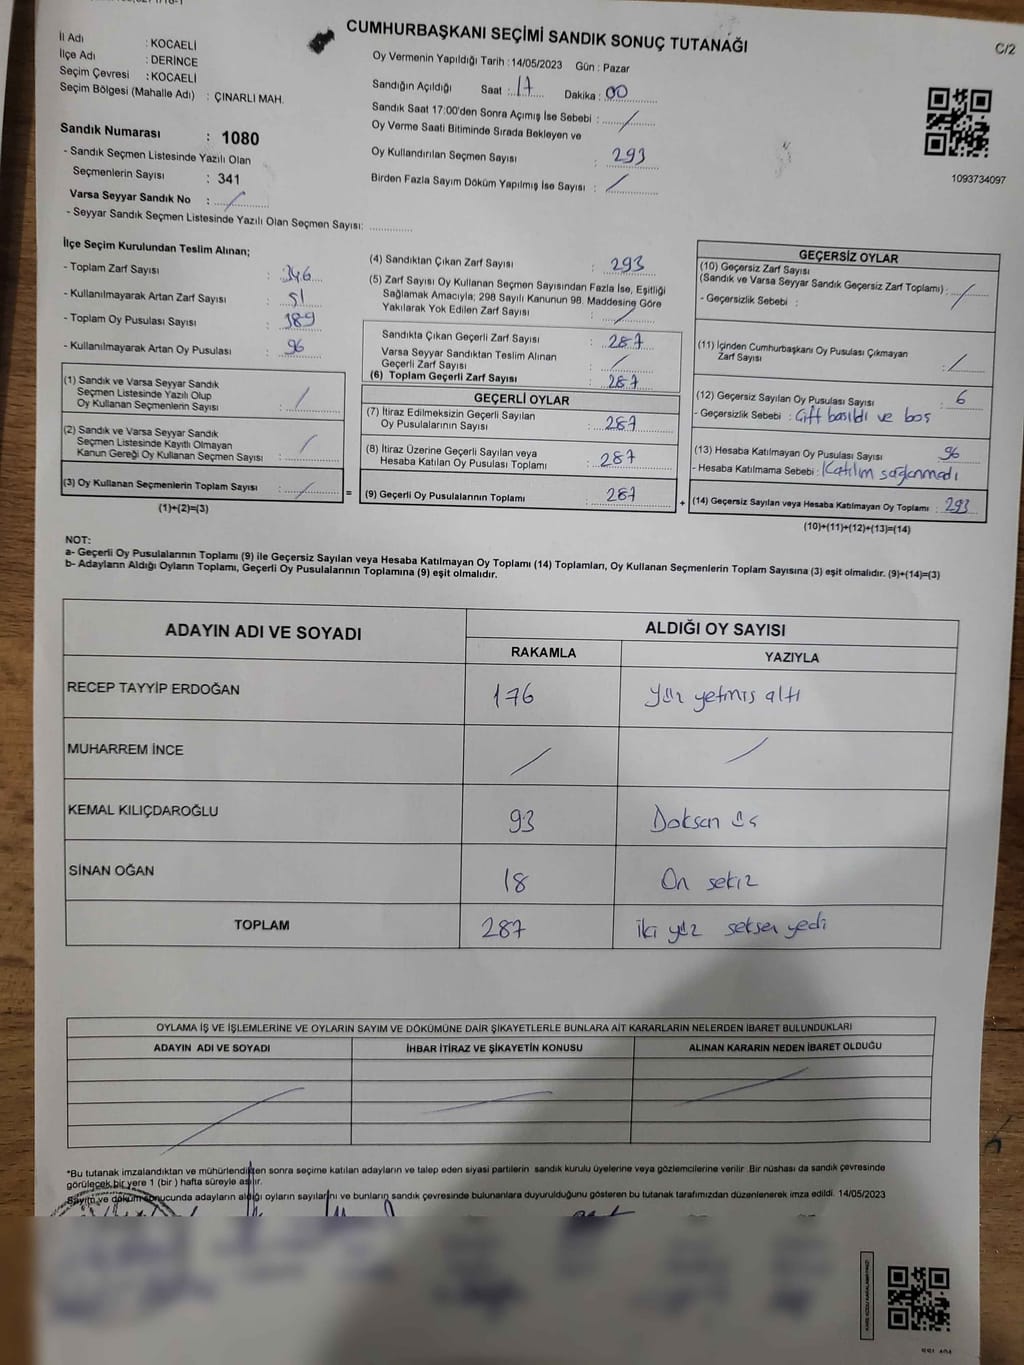 CUMHURBAŞKANI SEÇİMİ SANDIK SONUÇ TUTANAĞI
C/2
İl Adı : KOCAELİ
İlçe Adı : DERİNCE
Seçim Çevresi : KOCAELİ
Seçim Bölgesi (Mahalle Adı) : ÇINARLI MAH.
Sandık Numarası : 1080
- Sandık Seçmen Listesinde Yazılı Olan
Seçmenlerin Sayısı : 341
Varsa Seyyar Sandık No : /
- Seyyar Sandık Seçmen Listesinde Yazılı Olan Seçmen Sayısı: ............
Oy Vermenin Yapıldığı Tarih : 14/05/2023 Gün : Pazar
Sandığın Açıldığı Saat : 17 Dakika : 00
Sandık Saat 17:00'den Sonra Açımış İse Sebebi : /
Oy Verme Saati Bitiminde Sırada Bekleyen ve
Oy Kullandırılan Seçmen Sayısı : 293
Birden Fazla Sayım Döküm Yapılmış İse Sayısı : /
1093734097
İlçe Seçim Kurulundan Teslim Alınan;
- Toplam Zarf Sayısı : 346
- Kullanılmayarak Artan Zarf Sayısı : 51
- Toplam Oy Pusulası Sayısı : 389
- Kullanılmayarak Artan Oy Pusulası : 96
(1) Sandık ve Varsa Seyyar Sandık
Seçmen Listesinde Yazılı Olup
Oy Kullanan Seçmenlerin Sayısı : /
(2) Sandık ve Varsa Seyyar Sandık
Seçmen Listesinde Kayıtlı Olmayan
Kanun Gereği Oy Kullanan Seçmen Sayısı : /
(3) Oy Kullanan Seçmenlerin Toplam Sayısı : / =
(1)+(2)=(3)
(4) Sandıktan Çıkan Zarf Sayısı : 293
(5) Zarf Sayısı Oy Kullanan Seçmen Sayısından Fazla İse, Eşitliği
Sağlamak Amacıyla; 298 Sayılı Kanunun 98. Maddesine Göre
Yakılarak Yok Edilen Zarf Sayısı : /
Sandıkta Çıkan Geçerli Zarf Sayısı : 287
Varsa Seyyar Sandıktan Teslim Alınan
Geçerli Zarf Sayısı : /
(6) Toplam Geçerli Zarf Sayısı : 287
GEÇERLİ OYLAR
(7) İtiraz Edilmeksizin Geçerli Sayılan
Oy Pusulalarının Sayısı : 287
(8) İtiraz Üzerine Geçerli Sayılan veya
Hesaba Katılan Oy Pusulası Toplamı : 287
(9) Geçerli Oy Pusulalarının Toplamı : 287 +
GEÇERSİZ OYLAR
(10) Geçersiz Zarf Sayısı
(Sandık ve Varsa Seyyar Sandık Geçersiz Zarf Toplamı) : /
- Geçersizlik Sebebi :
(11) İçinden Cumhurbaşkanı Oy Pusulası Çıkmayan
Zarf Sayısı : /
(12) Geçersiz Sayılan Oy Pusulası Sayısı : 6
- Geçersizlik Sebebi : Çift basıldı ve boş
(13) Hesaba Katılmayan Oy Pusulası Sayısı 96
- Hesaba Katılmama Sebebi : Katılım sağlanmadı
(14) Geçersiz Sayılan veya Hesaba Katılmayan Oy Toplamı : 293
(10)+(11)+(12)+(13)=(14)
NOT:
a- Geçerli Oy Pusulalarının Toplamı (9) ile Geçersiz Sayılan veya Hesaba Katılmayan Oy Toplamı (14) Toplamları, Oy Kullanan Seçmenlerin Toplam Sayısına (3) eşit olmalıdır. (9)+(14)=(3)
b- Adayların Aldığı Oyların Toplamı, Geçerli Oy Pusulalarının Toplamına (9) eşit olmalıdır.
ADAYIN ADI VE SOYADI ALDIĞI OY SAYISI
RAKAMLA YAZIYLA
RECEP TAYYİP ERDOĞAN 176 Yüz yetmiş altı
MUHARREM İNCE / /
KEMAL KILIÇDAROĞLU 93 Doksan üç
SİNAN OĞAN 18 On sekiz
TOPLAM 287 iki yüz seksen yedi
OYLAMA İŞ VE İŞLEMLERİNE VE OYLARIN SAYIM VE DÖKÜMÜNE DAİR ŞİKAYETLERLE BUNLARA AİT KARARLARIN NELERDEN İBARET BULUNDUKLARI
ADAYIN ADI VE SOYADI İHBAR İTİRAZ VE ŞİKAYETİN KONUSU ALINAN KARARIN NEDEN İBARET OLDUĞU
*Bu tutanak imzalandıktan ve mühürlendikten sonra seçime katılan adayların ve talep eden siyasi partilerin sandık kurulu üyelerine veya gözlemcilerine verilir. Bir nüshası da sandık çevresinde
görülecek bir yere 1 (bir ) hafta süreyle asılır.
Sayım ve döküm sonucunda adayların aldığı oyların sayılarını ve bunların sandık çevresinde bulunanlara duyurulduğunu gösteren bu tutanak tarafımızdan düzenlenerek imza edildi. 14/05/2023